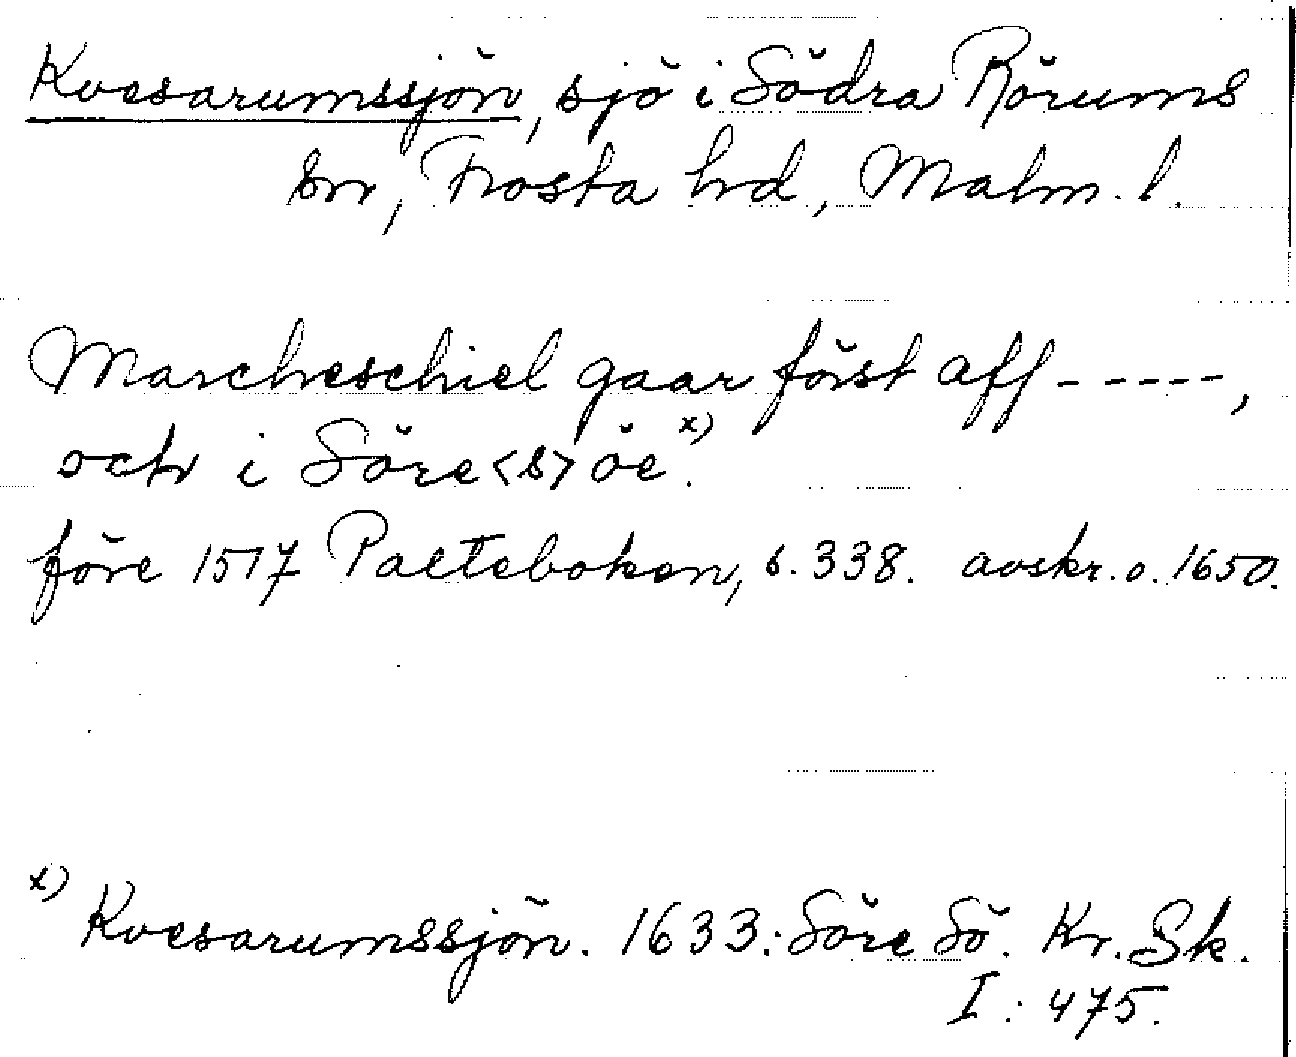 Kvesarumssjön, sjö i Södra Rörums
sn, Frosta hrd, Malm. l.
Marcheschiel gaar först aff -----,
och i Söre<s>öe.x)
före 1517 Palteboken, s. 338. avskr. o. 1650.
x) Kvesarumssjön. 1633: Söre Sö. Kr. Sk.
I: 475.